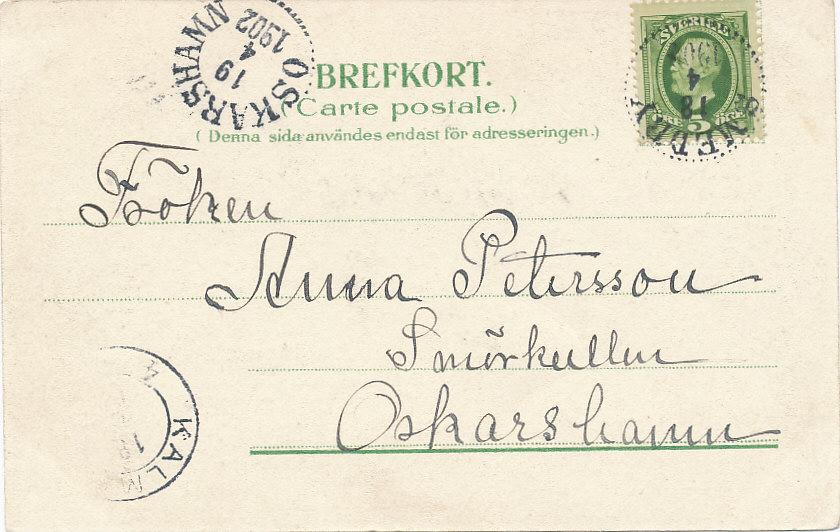 OSKARSHAMN
19
4
1902
SVERIGE
18
4
BREFKORT.
(Carte postale.)
(Denna sida användes endast för adresseringen.)
Fröken
Anna Petersson
Smörkullen
Oskarshamn
KALM